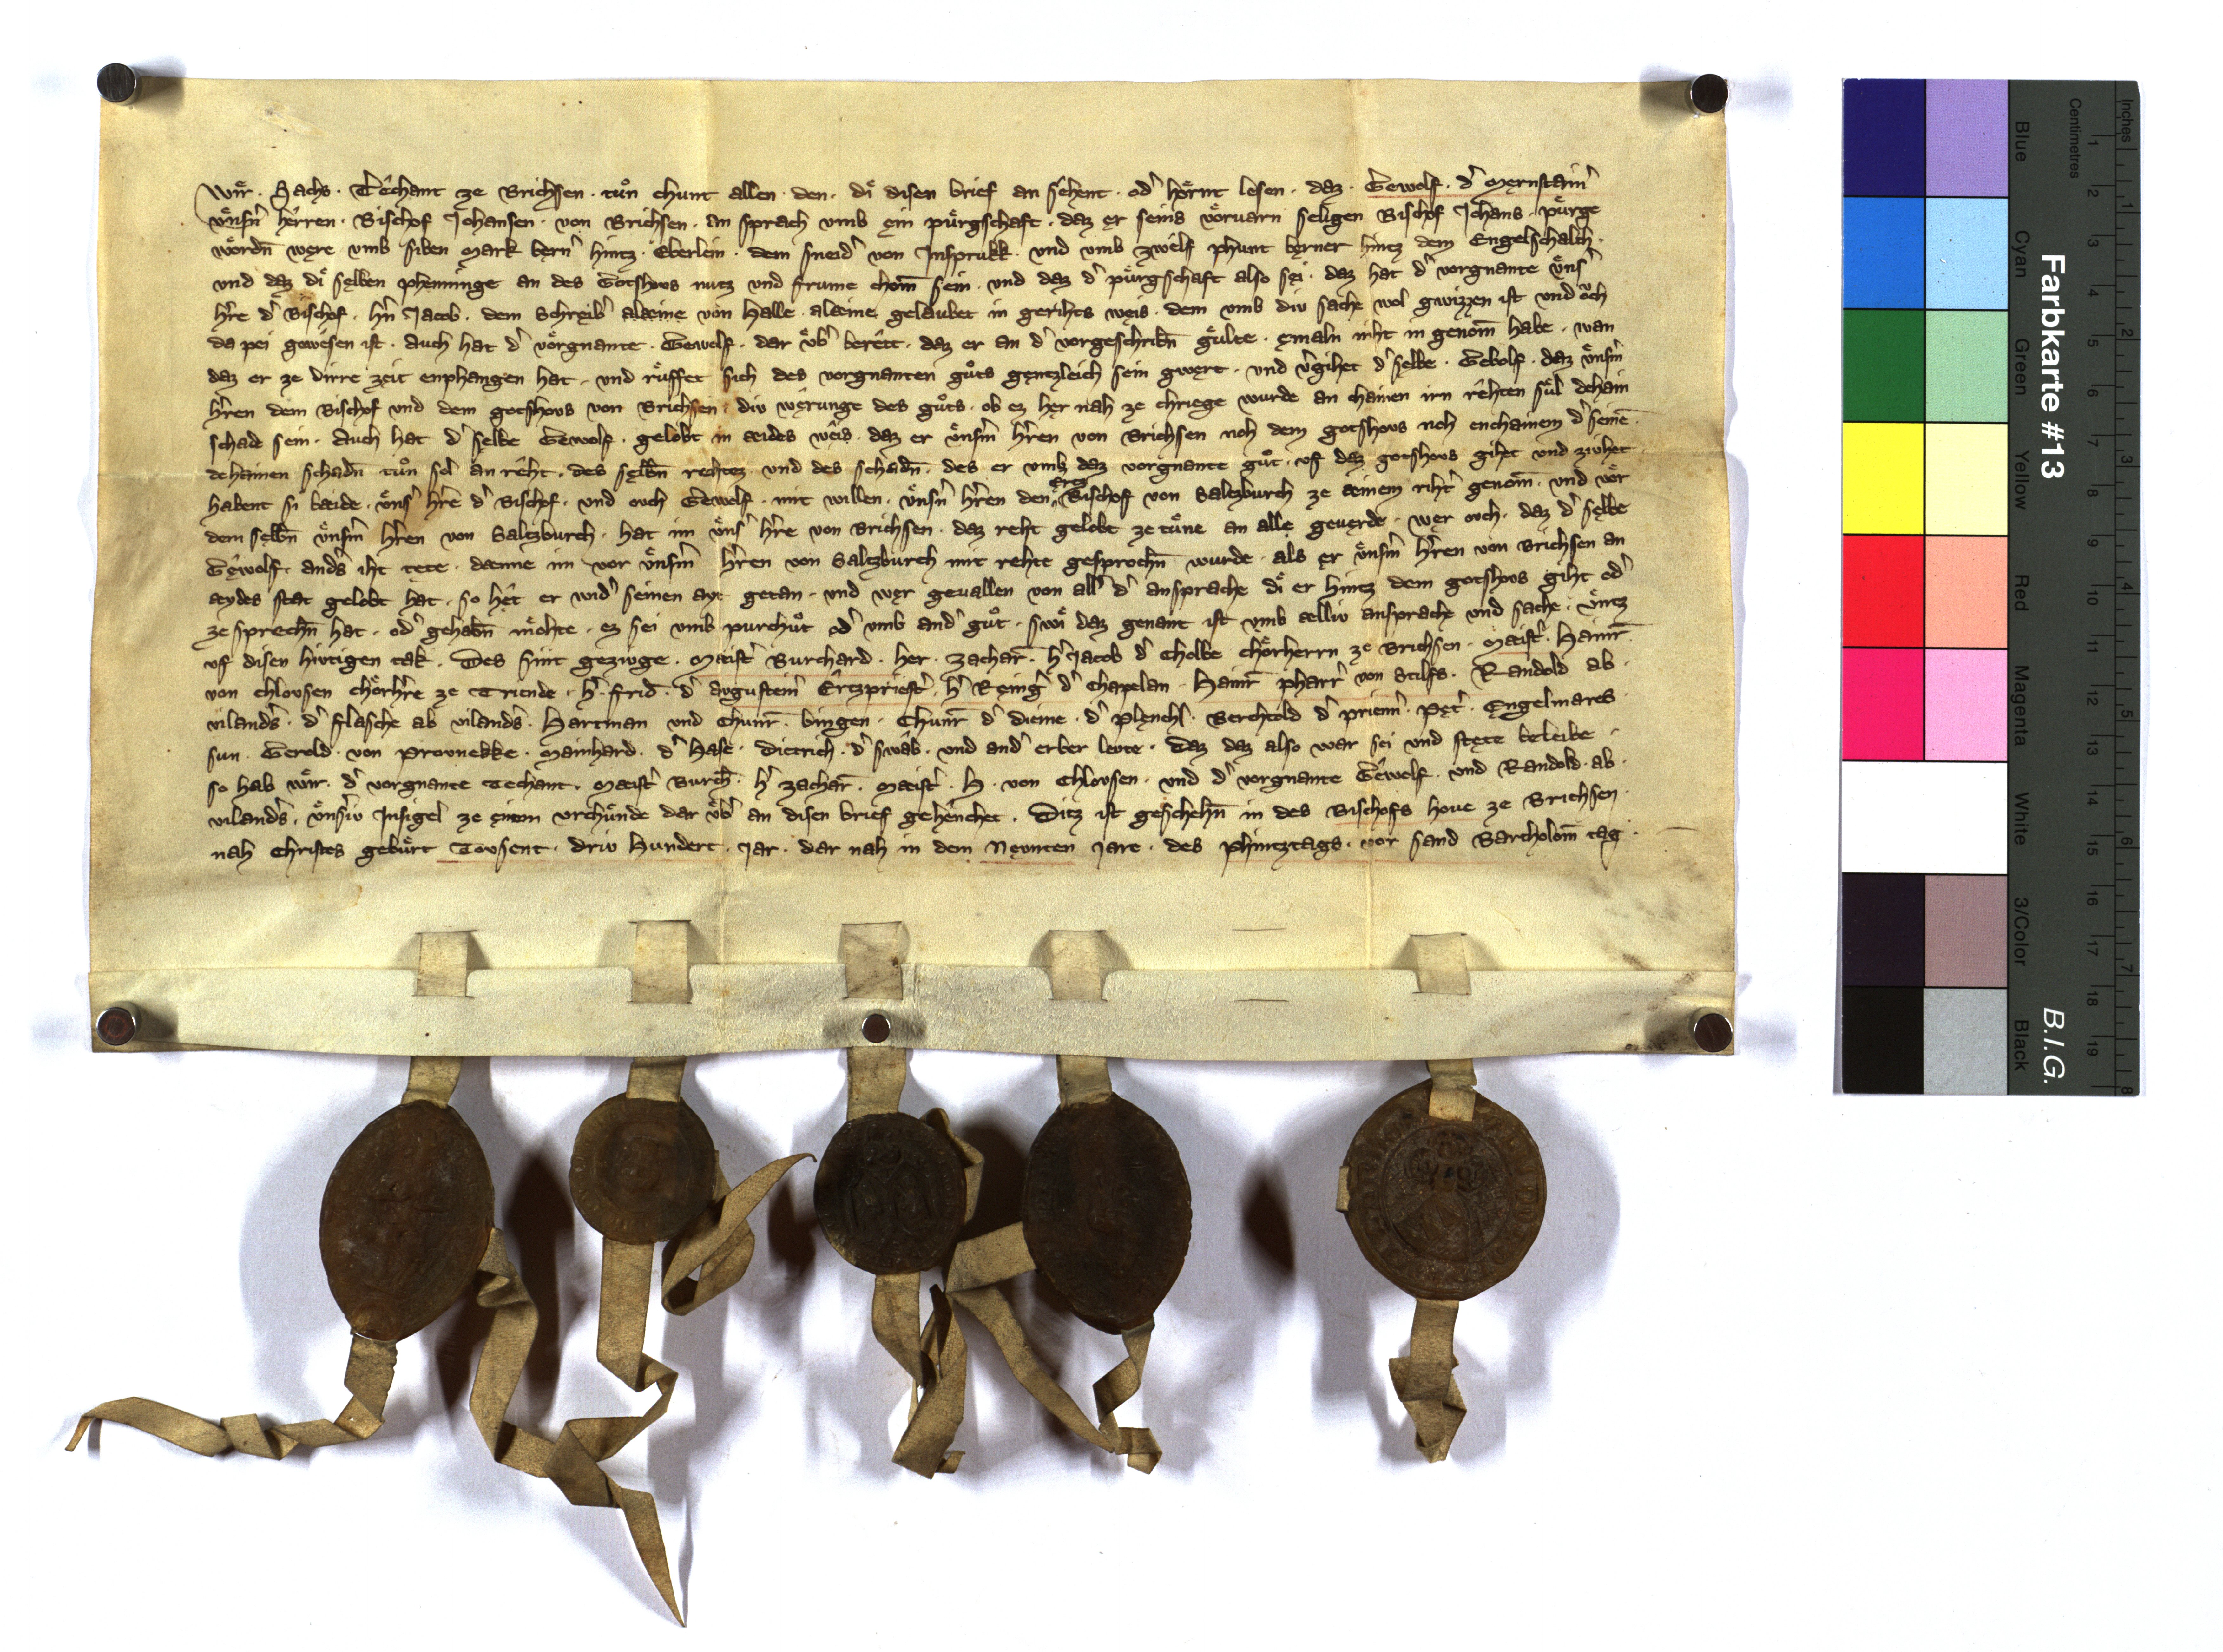 Wir · Sachs · Techant ze Brichsen · tuͦn chunt allen · den · di disen brief an sehent · od' hoͤrnt lesen · daz · Gewolf · d' Mernstain'
vͤnsm̄ herren · Bischof Johansen · von Brichsen · an sprach vmb ein puͤrgschaft · daz er seins voͤruarn seligen Bischof Johans · puͤrge
woͤrdn̄ were vmb siben mark bern' hintz · Eberlein · dem sneid' von Insprukk · vnd vmb zwelf phunt berner hintz dem Engelschalch ·
vnd daz di selben phenninge an des Gotshovs nutz vnd frume chom̄ sein · vnd daz d' puͤrgschaft also sei · daz hat d' vorgnante vͤns'
h're d' Bischof · h'n Jacob · dem Schreib' alaeine von Halle · alaeine gelaubet in gerihts weis · dem vmb div sache wol gwizzen ist vnd oͮch
da pei gewesen ist · Auch hat d' voͤrgnante · Gewolf · dar vͤb' berett · daz er an d' vorgeschribn̄ guͤlte · emaln niht in genom̄ habe · wan
daz er ze dirre zeit enphangen hat · vnd ruͤffet sich des vorgnanten guͦts gentzleich sein gwert · vnd v'gihet d' selbe · Gebolf · daz vͤnsm̄
h'ren dem Bischof vnd dem gotshovs von Brichsen · div werunge des guͦts · ob ez her nah ze chriege wurde an chainen irn rehten suͤl dehain
schade sein · Auch hat d' selbe Gewolf · gelobt in aides weis · daz er vͤnsm̄ h'ren von Brichsen noh dem gotshovs noh enchainem d' seinē
dehainen schadn̄ tuͦn sol an reht · des selbn̄ rechtez vnd des schadn̄ · des er vmb daz vorgnante guͦt · vf daz gotshovs gihet vnd zivhet ·
habent si baide · vͤns' h're d' Bischof · vnd ovch Gewolf · mit willen · vͤnsm̄ h'ren den Ertz Bischof von Saltzburch ze ainem riht' genom̄ · vnd vor
dem selbn̄ vͤnsm̄ h'ren von Saltzburch · hat im vͤns' h're von Brichsen · daz reht gelobt ze tuͤne an alle geuerde · wer ovch · daz d' selbe
Gewolf · and's iht tete · danne im vor vͤnsm̄ h'ren von Saltzburch mit rehte gesprochn̄ wurde · als er vͤnsm̄ h'ren von Brichsen an
aydes stat gelobt hat · so het er wid' seinen ayt getan · vnd wer geuallen von all' d' ansprache di er hintz dem gotshovs giht od'
ze sprechn̄ hat · od' gehabn̄ moͤhte · ez sei vmb purchuͦt od' vmb and' guͦt · swi daz genant ist vmb aelliv ansprache vnd sache · vͤntz
vf disen hivtigen tak · Des sint gezivge · Maist' Burchard · her · Zachar̄ · h' Jacob d' Cholbe choͤrherrn ze Brichsen · Maist' · Hainr̄
von Chlovsen choͤrh're ze Triende · h' · Frid̄ · d' Augustein' Ertzpriest' · h' Reing' d' chapelan · Hainr̄ pharr' von Stilfs · Randold ab ·
viland's · d' flasche ab viland's · Hartman vnd Chunr̄ · bingen · Chunr̄ d' dieme · d' plenchl · Berchtold d' prienn' · Pet' · Engelmares ·
sun · Gerold · von Provnekke · Mainhard · d' Hase · Dietrich · d' swab · vnd and' erber levte · Daz daz also war sei vnd stete beleibe ·
so hab wir · d' vorgnante Techant · Maist' Burch̄ · h' Zachar̄ · Maist' · H · von Chlovsen · vnd d' vorgnante Gewolf · vnd Randold · ab ·
viland's · vͤns'iv Insigel ze einem vrchuͤnde dar vͤb' an disen brief gehenchet · Ditz ist geschehn̄ in des Bischofs houe ze Brichsen ·
nah Christes gebuͤrt Tovsent · driv Hundert · Jar · dar nah in dem Nevnten Jare · des Phintztags · vor sand Bartholom̄ tag ·
Farbkarte #13
B.I.G.
Inches
Centimetres
Blue
Cyan
Green
Yellow
Red
Magenta
White
3/Color
Black
1 2 3 4 5 6 7 8 9 10 11 12 13 14 15 16 17 18 19
1 2 3 4 5 6 7 8